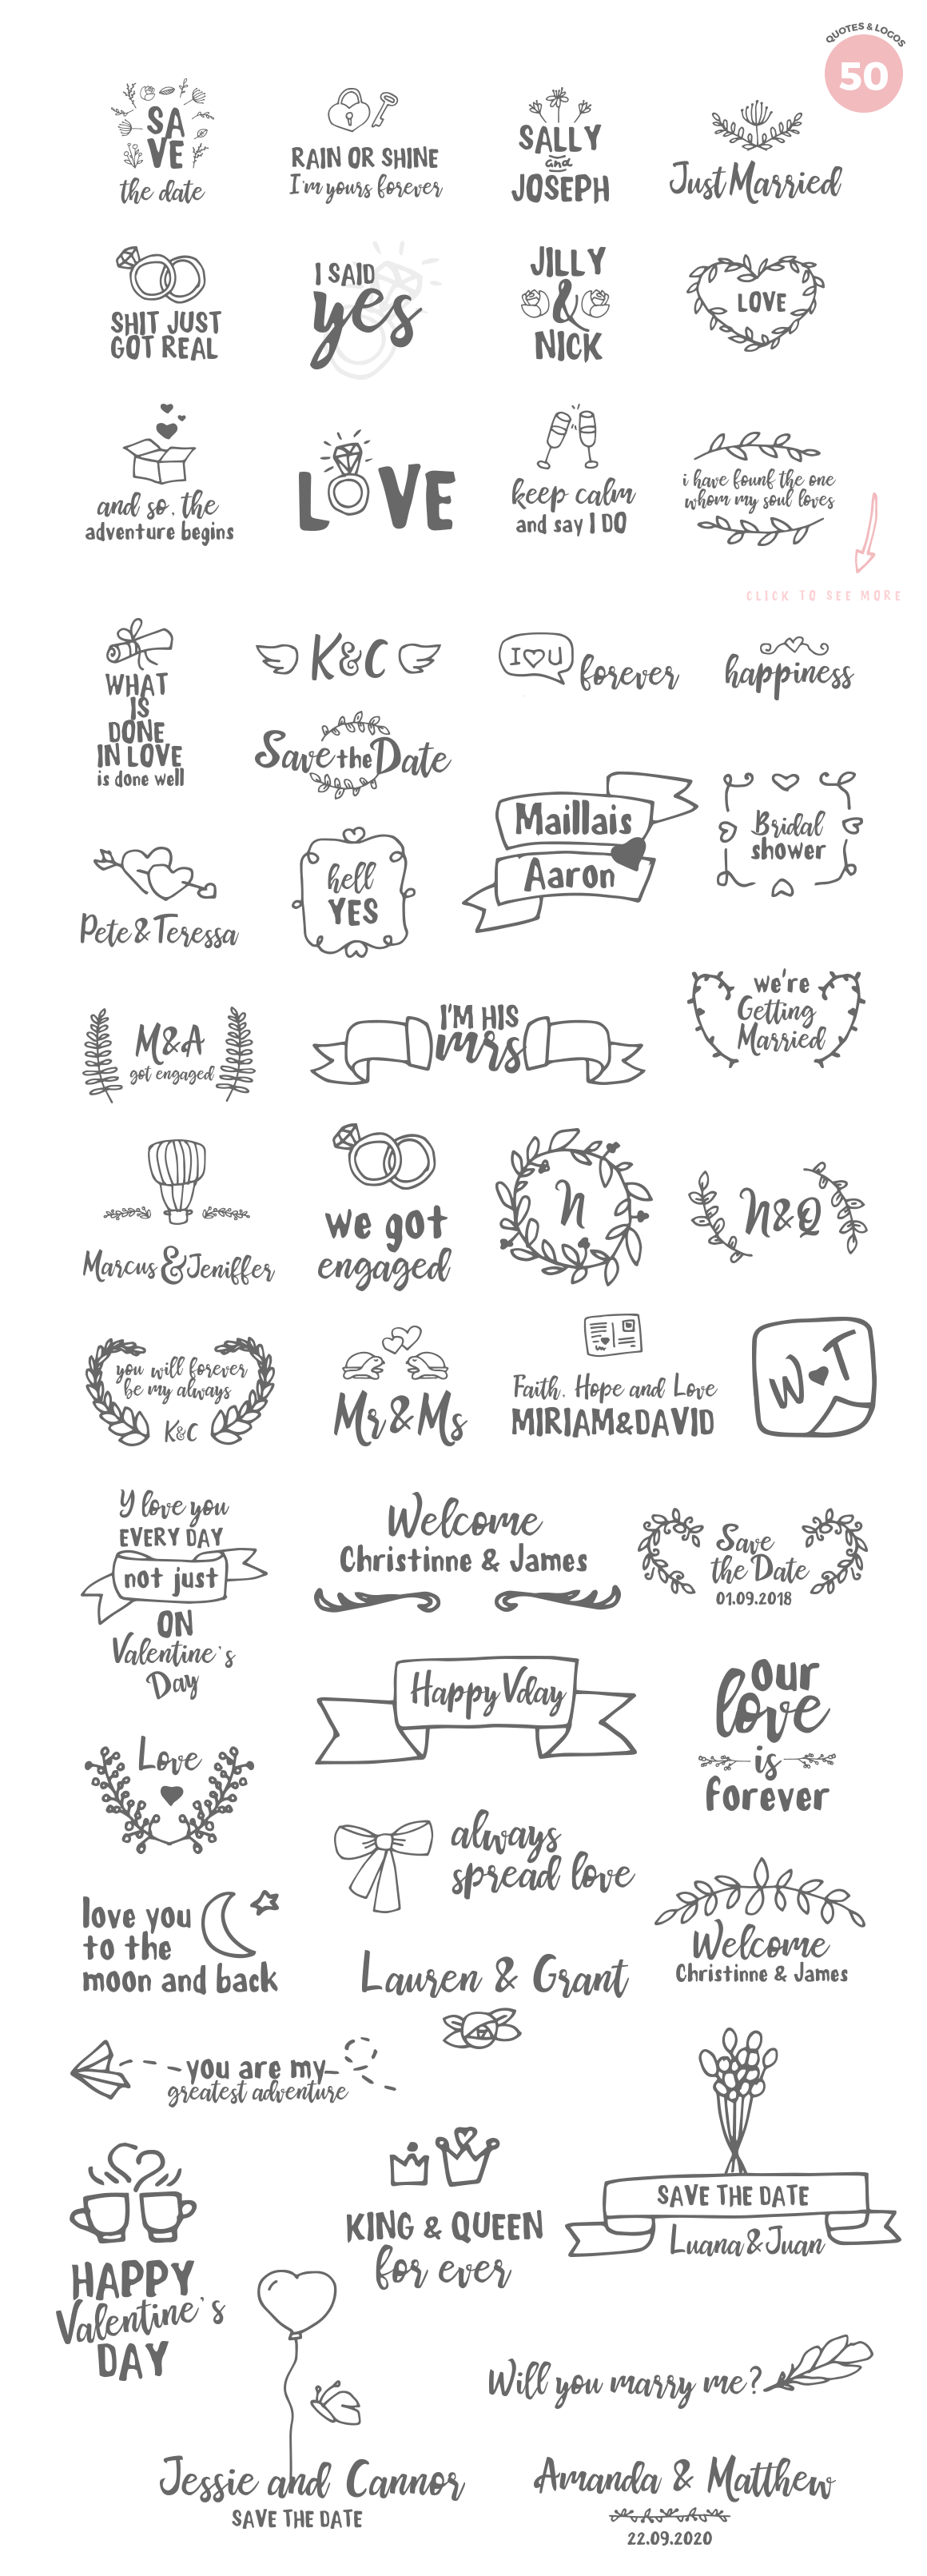 QUOTES & LOGOS
50
SA
VE
the date
RAIN OR SHINE
I'm yours forever
SALLY
and
JOSEPH
Just Married
SHIT JUST
GOT REAL
I SAID
yes
JILLY
&
NICK
LOVE
and so, the
adventure begins
LOVE
keep calm
and say I DO
i have founf the one
whom my soul loves
CLICK TO SEE MORE
WHAT
IS
DONE
IN LOVE
is done well
K&C
I♡U
forever
happiness
Save the Date
Maillais
Aaron
Bridal
shower
Pete & Teressa
hell
YES
M&A
got engaged
I'M HIS
mrs
we're
Getting
Married
Marcus & Jeniffer
we got
engaged
N
N&Q
you will forever
be my always
K&C
Mr & Ms
Faith, Hope and Love
MIRIAM&DAVID
W♥T
Y love you
EVERY DAY
not just
ON
Valentine's
Day
Welcome
Christinne & James
Save
the Date
01.09.2018
Happy Vday
our
love
is
forever
Love
always
spread love
love you
to the
moon and back
Lauren & Grant
Welcome
Christinne & James
you are my
greatest adventure
HAPPY
Valentine's
DAY
KING & QUEEN
for ever
SAVE THE DATE
Luana & Juan
Will you marry me?
Jessie and Cannor
SAVE THE DATE
Amanda & Matthew
22.09.2020